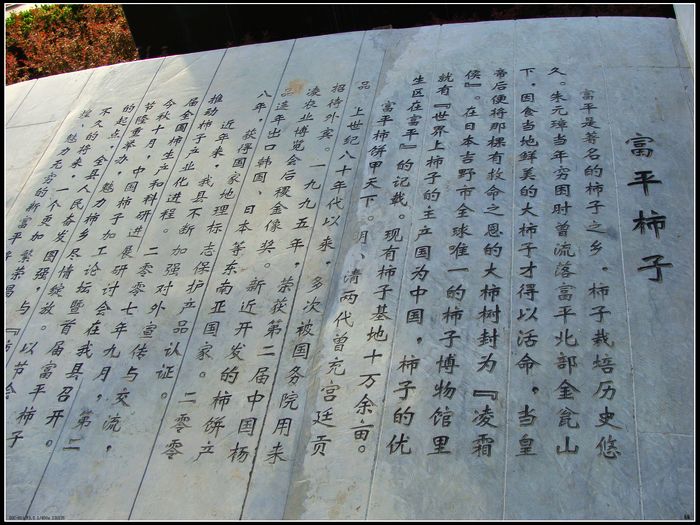 富平柿子
富平是著名的柿子之乡。柿子栽培历史悠
久。朱元璋当年穷困时曾流落富平北部金瓮山
下，因食当地鲜美的大柿子才得以活命，当皇
帝后便将那棵有救命之恩的大柿树封为『凌霜
侯』。在日本吉野市全球唯一的柿子博物馆里
就有『世界上柿子的主产国为中国，柿子的优
生区在富平』的记载。现有柿子基地十万余亩。
富平柿饼甲天下。明、清两代曾充宫廷贡
品，上世纪八十年代以来，多次被国务院用来
招待外宾。一九九五年，荣获第二届中国杨
凌农业博览会后稷金像奖。新近开发的柿饼产
品连年出口韩国、日本等东南亚国家。二零零
八年，获得国家地理标志保护产品认证。
近年来，我县不断加强对外宣传与交流，
推动柿子产业化进程。二零零七年九月，第二
届全国柿生产和科研进展研讨会在我县召开。
今秋十月，中国柿子加工论坛暨首届富平柿子
节隆重举办，魅力柿乡尽情绽放。以节会
的起点，全县人民奋发图强，与
不久的将来，一个更加繁荣昌
魅力无穷的新富平